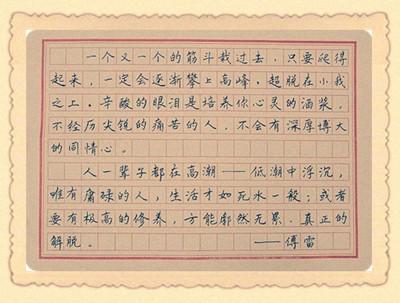 一个又一个的筋斗栽过去,只要爬得
起来,一定会逐渐攀上高峰,超脱在小我
之上。辛酸的眼泪是培养你心灵的酒浆。
不经历尖锐的痛苦的人,不会有深厚博大
的同情心。
人一辈子都在高潮——低潮中浮沉,
唯有庸碌的人,生活才如死水一般;或者
要有极高的修养,方能廓然无累,真正的
解脱。 ——傅雷